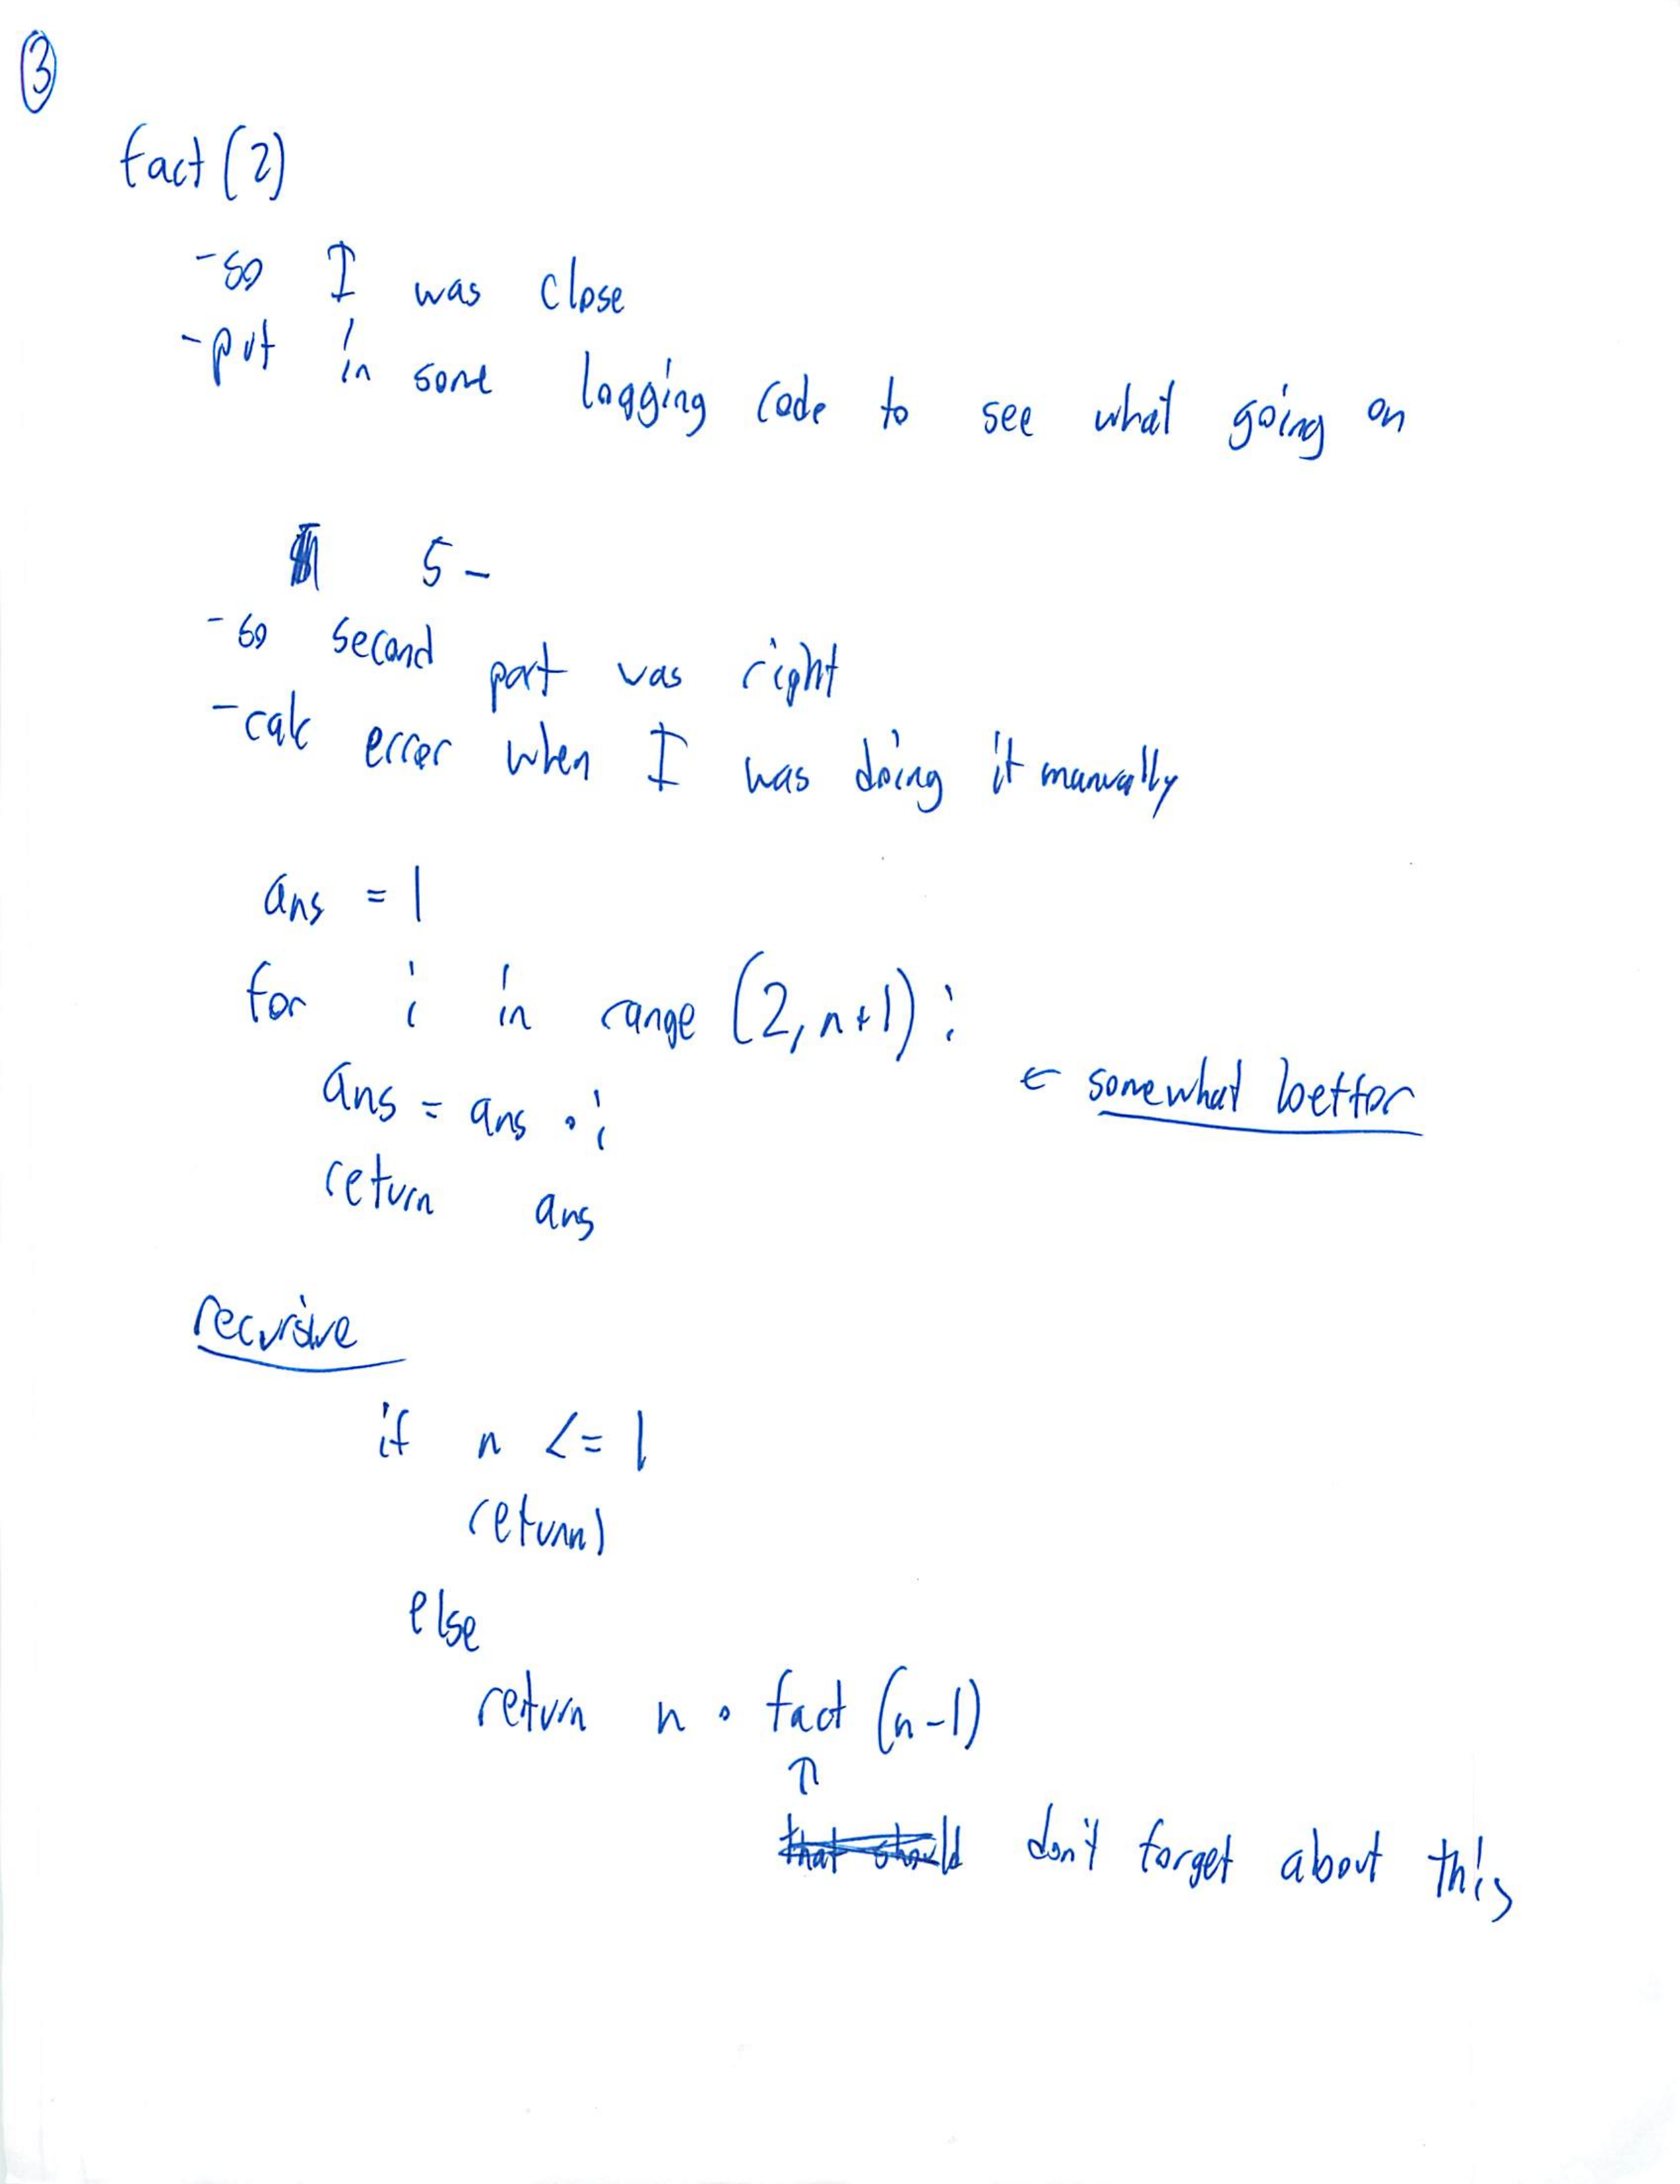 3
fact (2)
- so I was close
- put in some logging code to see what going on
5 -
- so second part was right
- calc error when I was doing it manually
ans = 1
for i in range (2, n+1):
ans = ans • i
← somewhat better
return ans
recursive
if n <= 1
return 1
else
return n • fact (n-1)
↑
that should don't forget about this